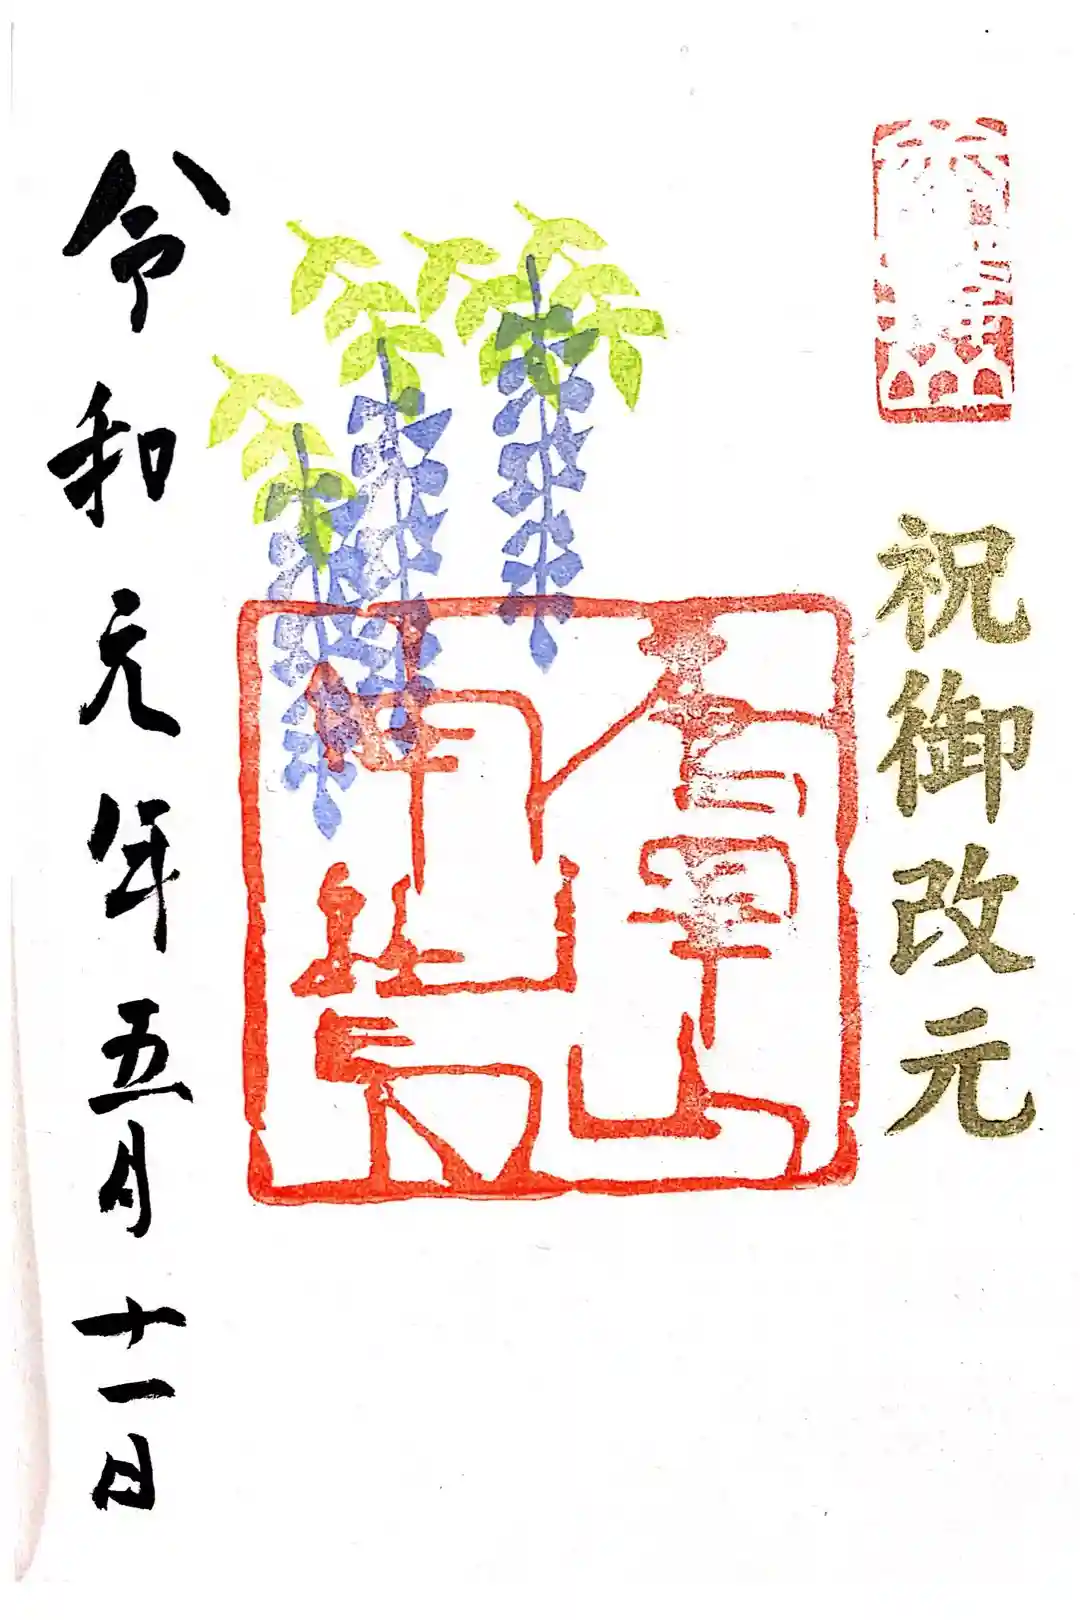 祝御改元
令和元年五月十一日